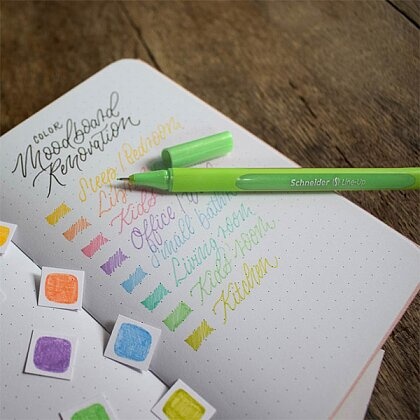 COLOR
Moodboard
Renovation
Sleep/Bedroom
Kids
Office/
Small bath
Living room
Kids room
Kitchen
Schneider Line-Up